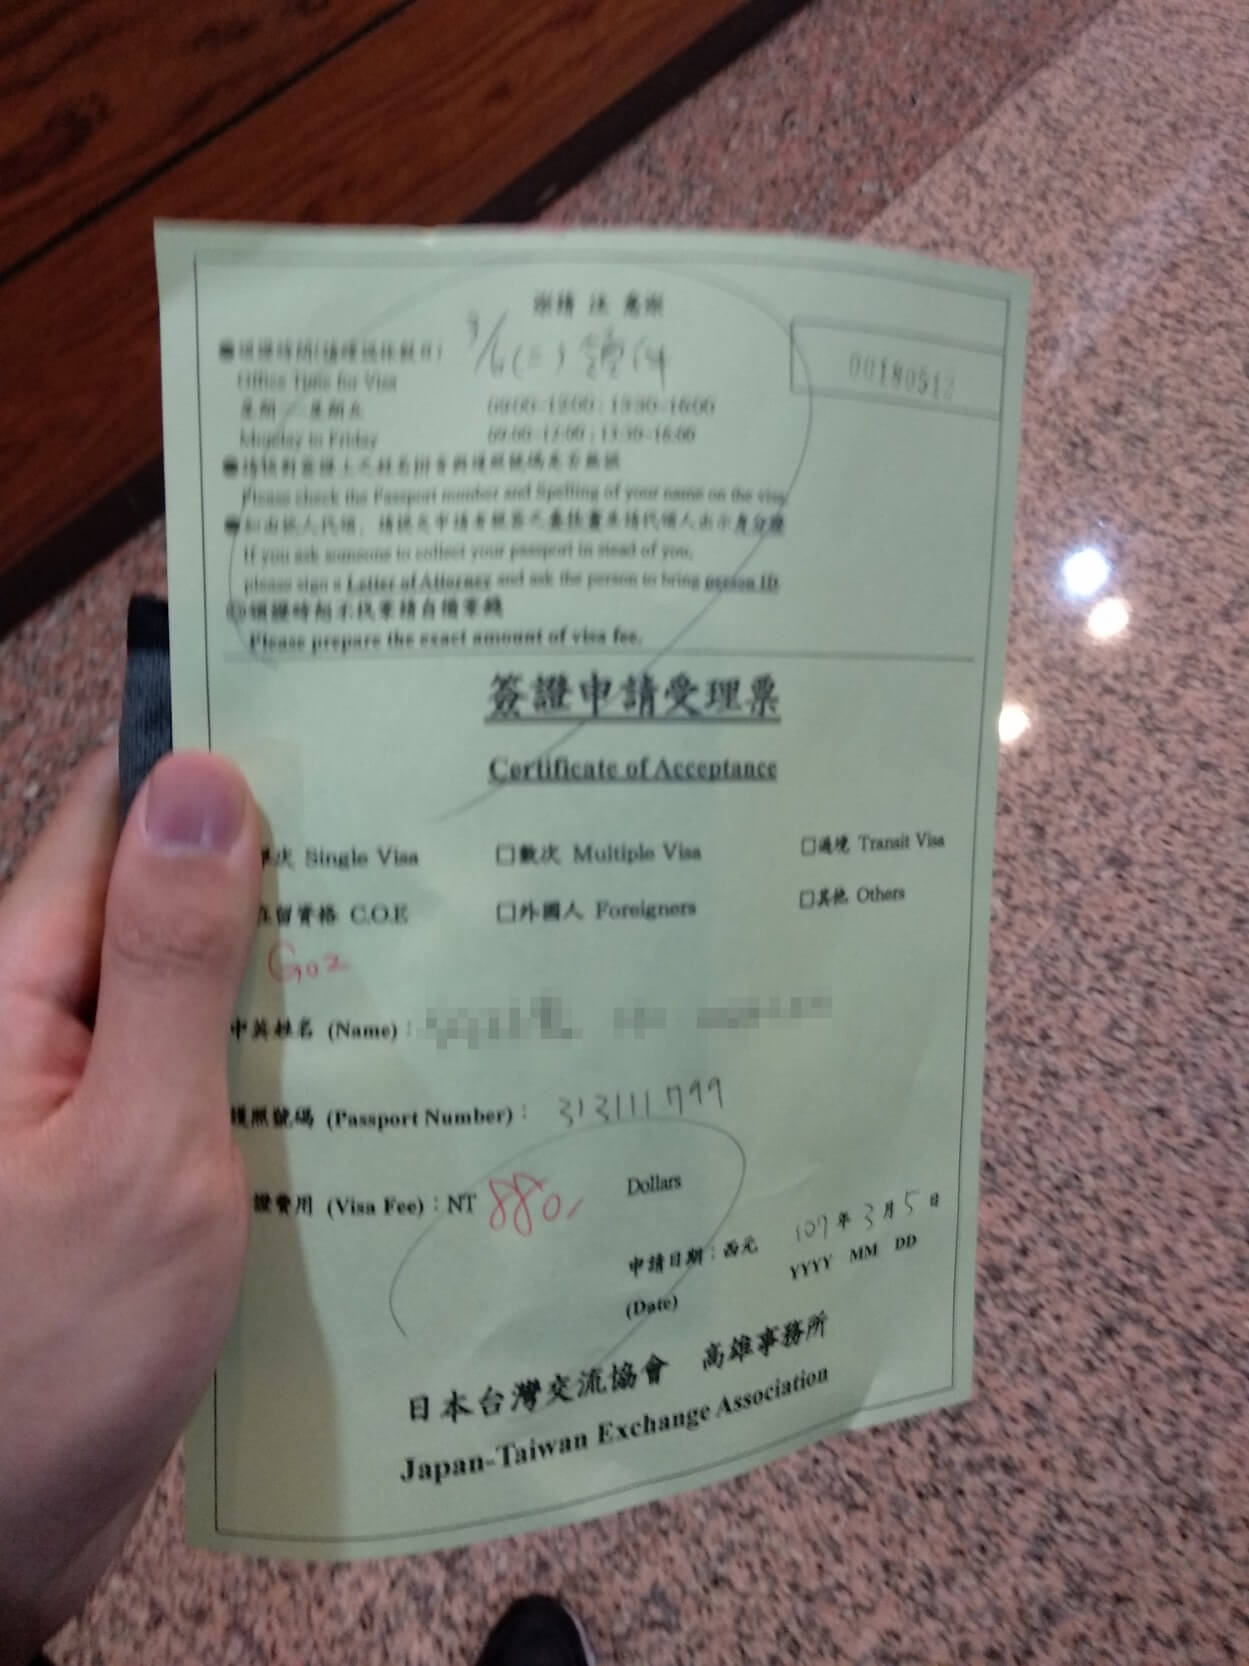 00180512
Office Time for Visa
09:00~12:00；13:30~16:00
Monday to Friday 09:00~12:00；13:30~16:00
Please check the Passport number and Spelling of your name on the visa
If you ask someone to collect your passport in stead of you,
please sign a Letter of Attorney and ask the person to bring person ID
Please prepare the exact amount of visa fee.
簽證申請受理票
Certificate of Acceptance
次 Single Visa □數次 Multiple Visa □過境 Transit Visa
在留資格 C.O.E □外國人 Foreigners □其他 Others
G02
中英姓名 (Name)：
護照號碼 (Passport Number)： 313111799
證費用 (Visa Fee)：NT 880 Dollars
申請日期：西元 107年 3月 5日
(Date) YYYY MM DD
日本台灣交流協會 高雄事務所
Japan-Taiwan Exchange Association